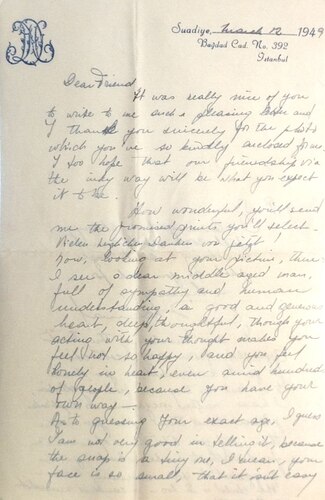 Suadiye, March 12 1949
Bağdad Cad. No. 392
İstanbul
Dear Friend,
It was really nice of you
to write to me such a pleasing letter and
I thank you sincerely for the photo
which you've so kindly enclosed for me.
I too hope that our friendship via
the inky way will be what you expect
it to be.
How wonderful, you'll send
me the promised prints you'll select.
Vielen herzlichen Danken von jetzt!
Now, looking at your picture, there
I see a dear middle aged man,
full of sympathy and human
understanding, a good and generous
heart, deep, thoughtful, though your
acting with your thought makes you
feel not so happy, and you feel
lonely in heart even amid hundred
of people, because you have your
own way —
As to guessing your exact age, I guess
I am not very good in telling it, because
the snap is a tiny one, I mean, your
face is so small, that it isn't easy